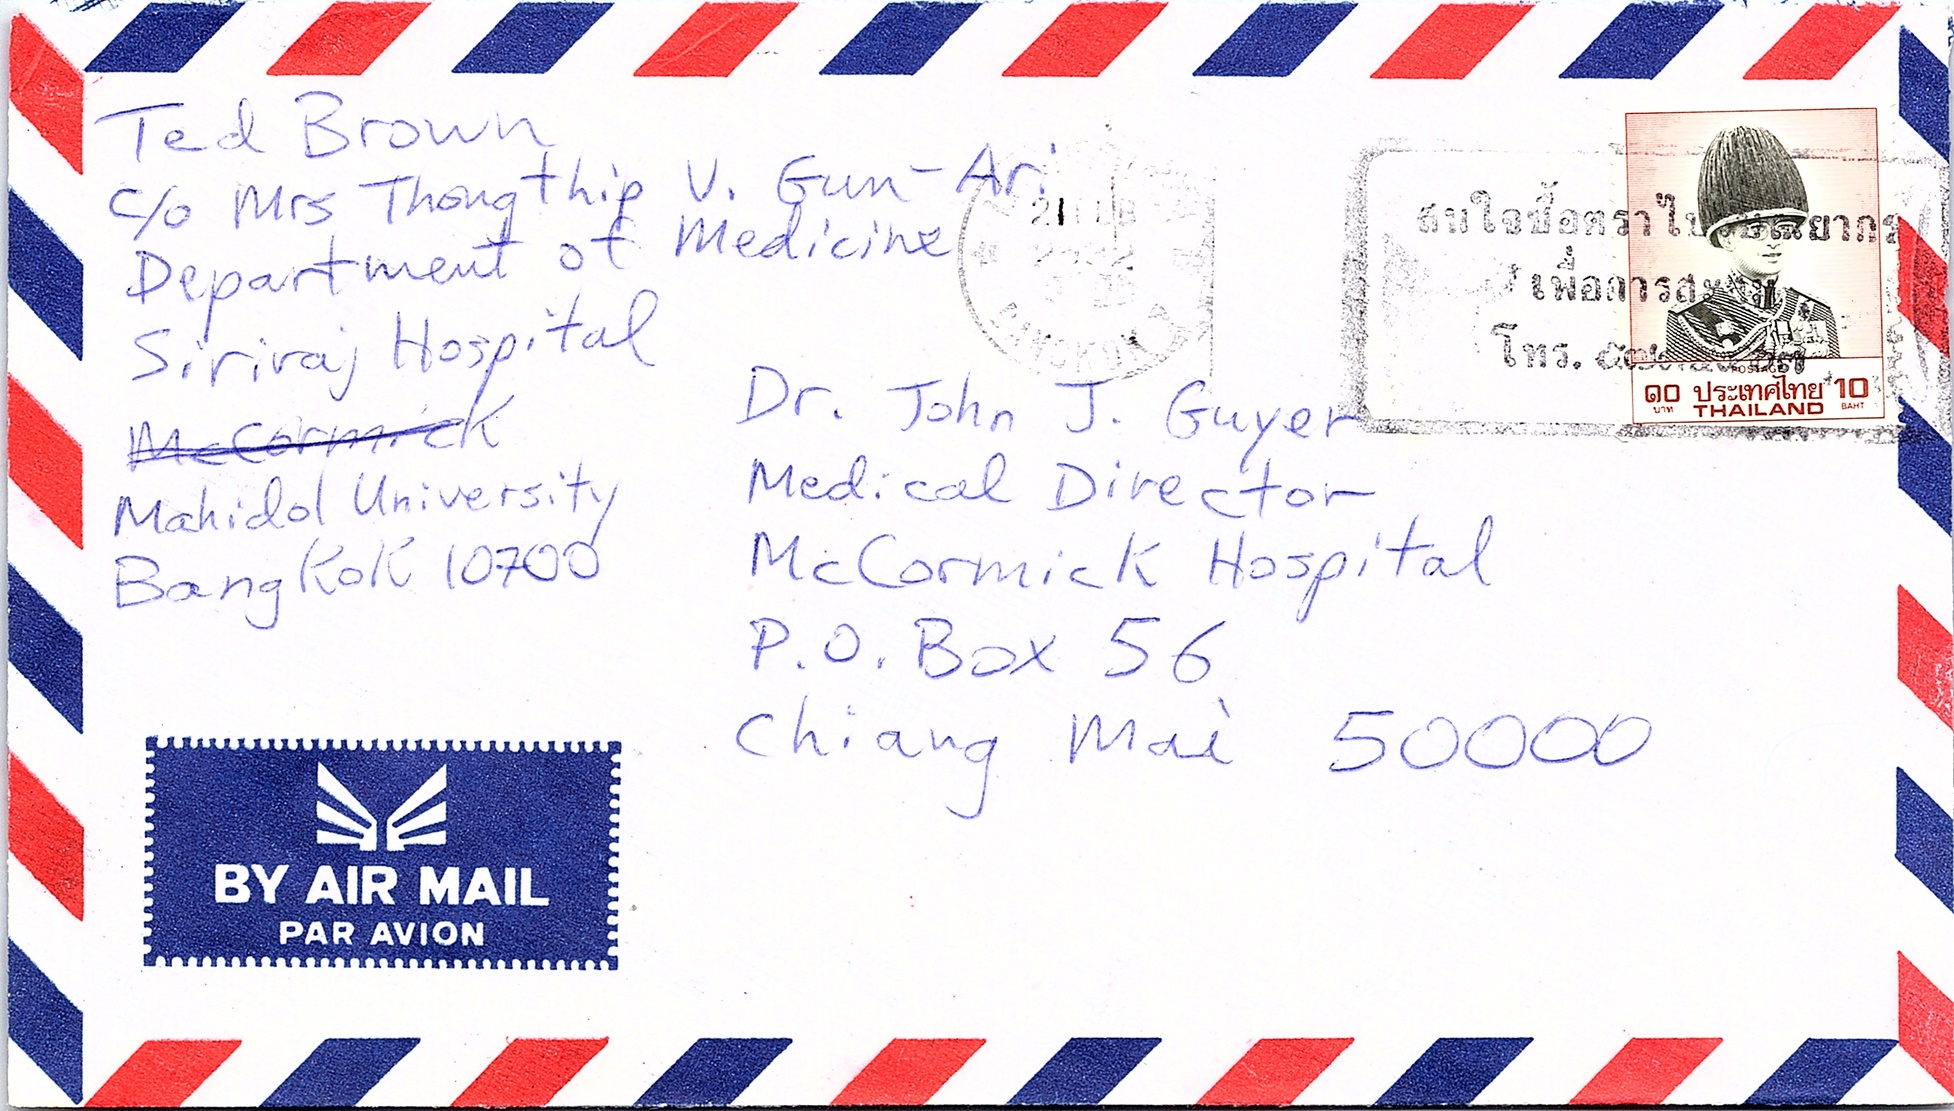 Ted Brown
c/o Mrs Thongthip V. Gun-Ari
Department of Medicine
Siriraj Hospital
McCormick
Mahidol University
Bangkok 10700
21
BANGKOK
สนใจซื้อตราไปรษณียากร
เพื่อการสะสม
โทร.
POSTAGE
๑๐ ประเทศไทย 10
บาท THAILAND BAHT
Dr. John J. Guyer
Medical Director
McCormick Hospital
P.O. Box 56
Chiang Mai 50000
BY AIR MAIL
PAR AVION